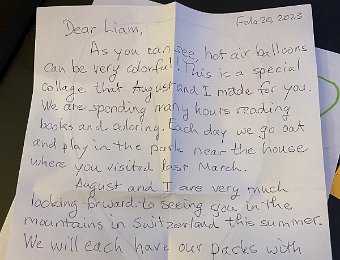 Feb 20, 2023
Dear Liam,
As you can see hot air balloons
can be very colorful. This is a special
collage that August and I made for you.
We are spending many hours reading
books and coloring. Each day we go out
and play in the park near the house
where you visited last March.
August and I are very much
looking forward to seeing you in the
mountains in Switzerland this summer.
We will each have our packs with